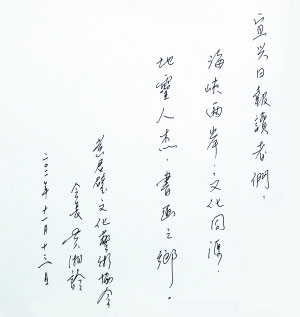 宜兴日報讀者們：
海峽两岸．文化同源．
地靈人杰．書画之鄉．
黄君璧文化藝術協会
会長 黄湘詅
二〇一一年十一月十三日